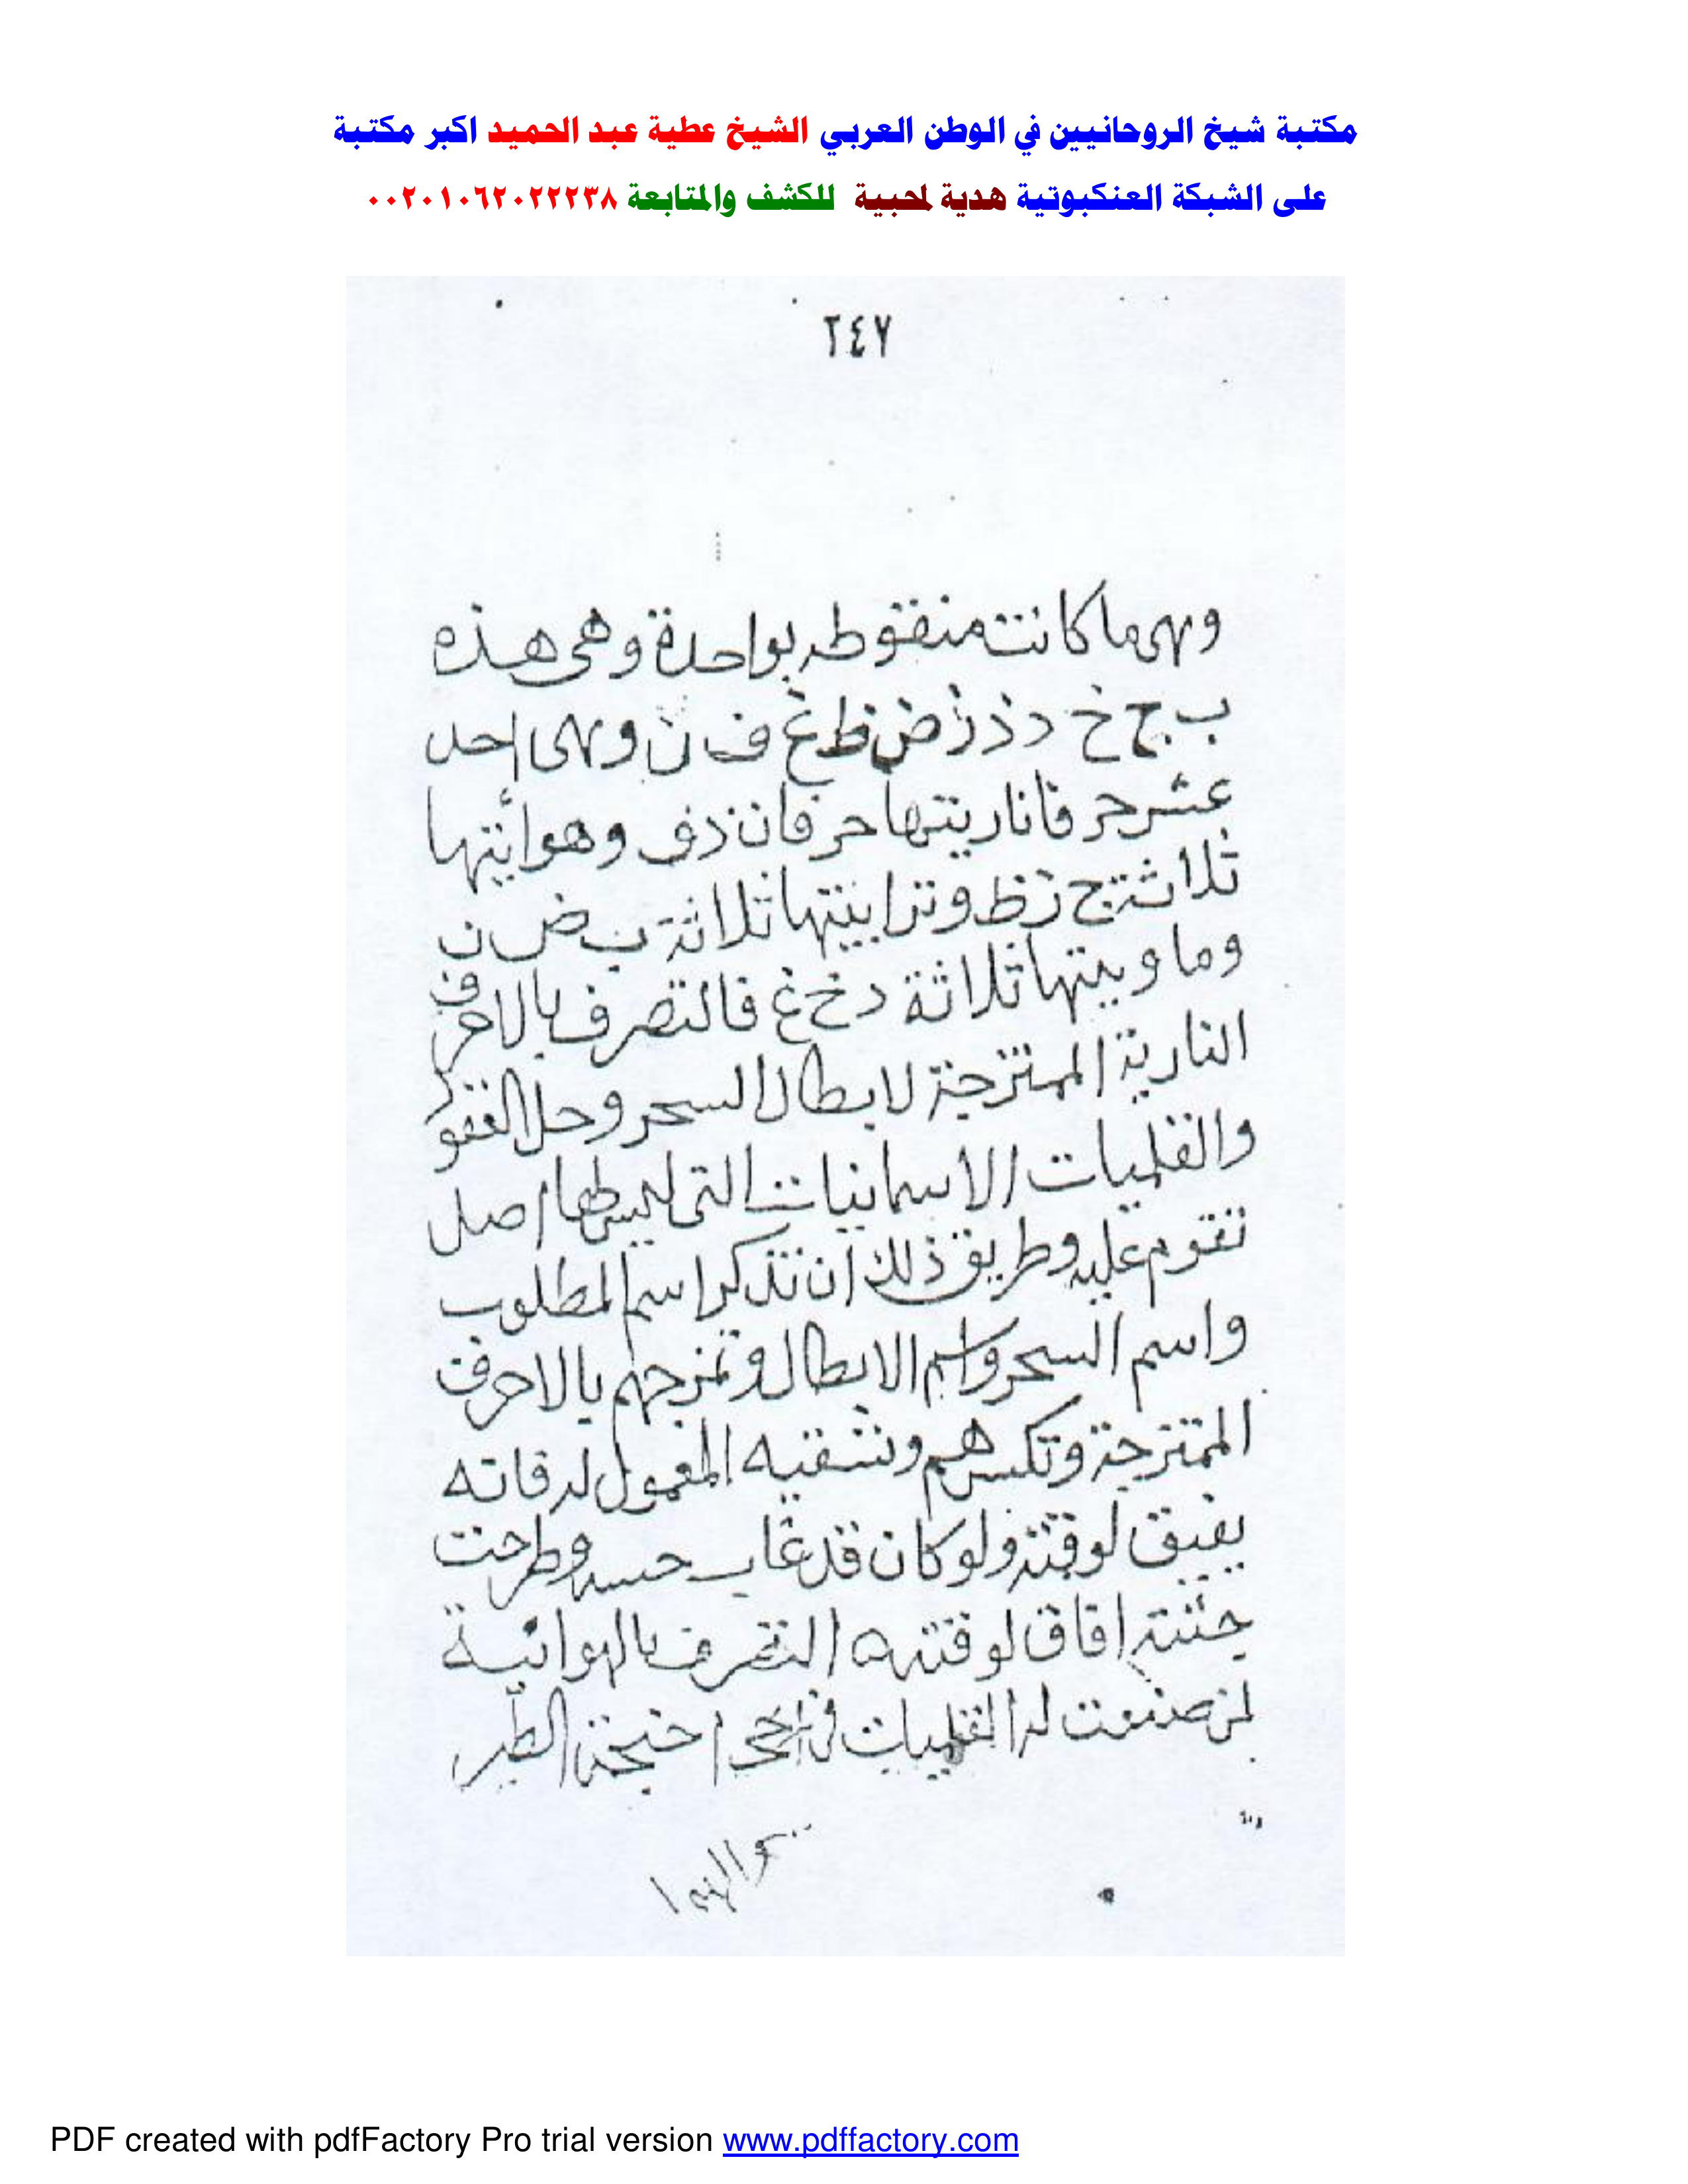 مكتبة شيخ الروحانيين في الوطن العربي الشيخ عطية عبد الحميد اكبر مكتبة
على الشبكة العنكبوتية هدية لمحبية للكشف والمتابعة ٠٠٢٠١٠٦٢٠٢٢٢٣٨
٢٤٧
وهى ما كانت منقوطه بواحدة وهى هذه
ب ج خ د ذ ز ض ظ غ ف ن وهى احد
عشر حرفا ناريتها حرفان ذ ف وهوائيتها
ثلاثة ج ز ظ وترابيتها ثلاثة ب ض ن
وما وييتها ثلاثة د خ غ فالتصرف بالاحرف
النارية الممتزجة لابطال السحر وحل
والقلميات الاسمانيات التى ليس لها اصل
تقوم عليه وطريق ذلك ان تذكر اسم المطلوب
واسم السحر واسم الابطال وتمزجهم بالاحرف
الممتزجة وتكسرهم وتسقيه المعمول له فانه
يفيق لوقته ولو كان قد غاب حسه وطرحت
جثته افاق لوقته التصرف بالهوائية
لمن صنعت له القلميات فى اجنحة الطير
PDF created with pdfFactory Pro trial version www.pdffactory.com